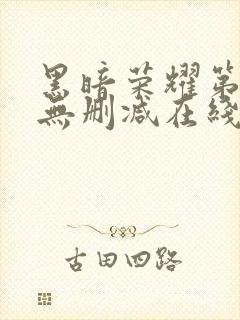 黑暗荣耀第
無删减在线
古田四路